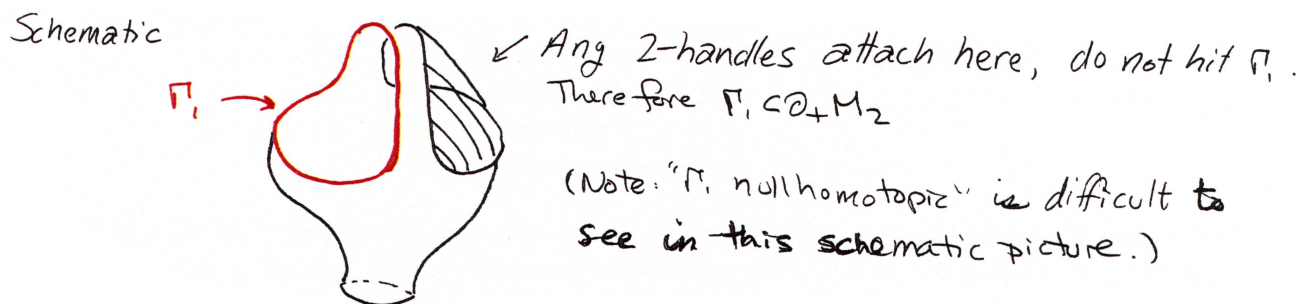 Schematic
Γ₁ → ↙ Ang 2-handles attach here, do not hit Γ₁.
Therefore Γ₁ ⊂ ∂₊M₂
(Note: "Γ₁ nullhomotopic" is difficult to
see in this schematic picture.)